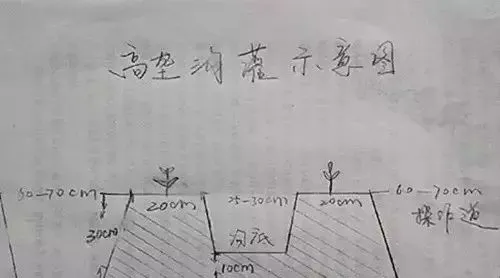 高垄沟灌示意图
60-70cm 20cm 25-30cm 20cm 60-70cm
30cm 沟底 操作道
10cm